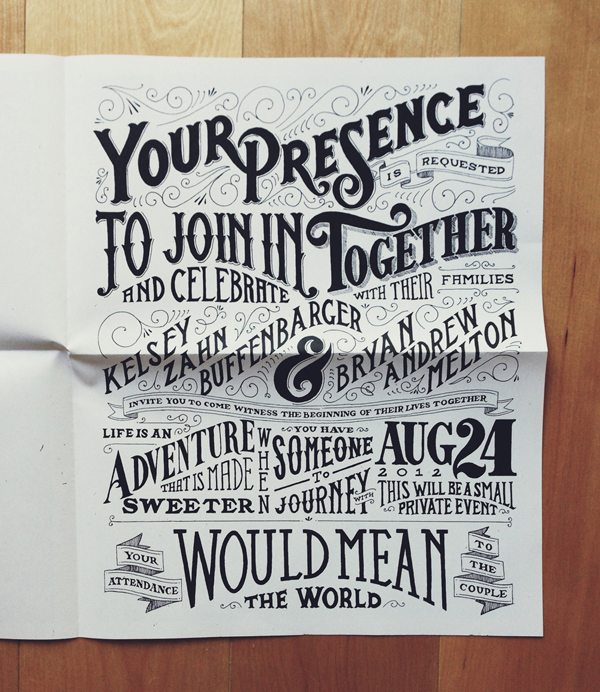 YOUR PRESENCE
IS REQUESTED
TO JOIN IN TOGETHER
AND CELEBRATE WITH THEIR FAMILIES
KELSEY ZAHN BUFFENBARGER
&
BRYAN ANDREW MELTON
INVITE YOU TO COME WITNESS THE BEGINNING OF THEIR LIVES TOGETHER
LIFE IS AN
ADVENTURE
THAT IS MADE
SWEETER
WHEN
YOU HAVE
SOMEONE
TO
JOURNEY
WITH
AUG 24
2012
THIS WILL BE A SMALL
PRIVATE EVENT
YOUR
ATTENDANCE
WOULD MEAN
THE WORLD
TO
THE
COUPLE